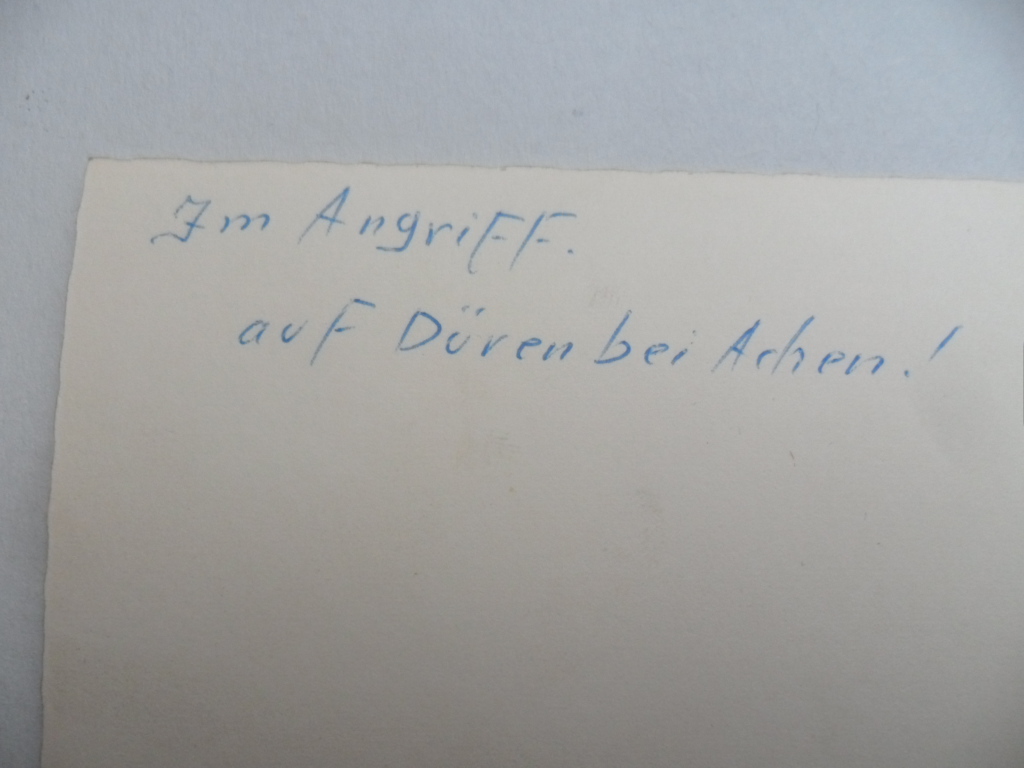 Im Angriff.
auf Düren bei Achen!